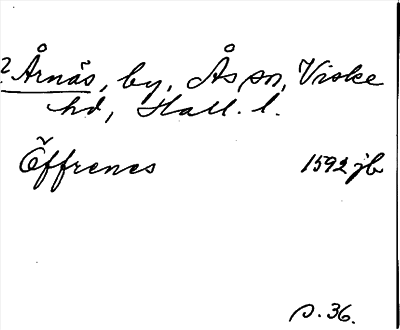 ? Årnäs, by, Ås sn, Viske
hd, Hall. l.
Öffrenes 1592 jb
s. 36.